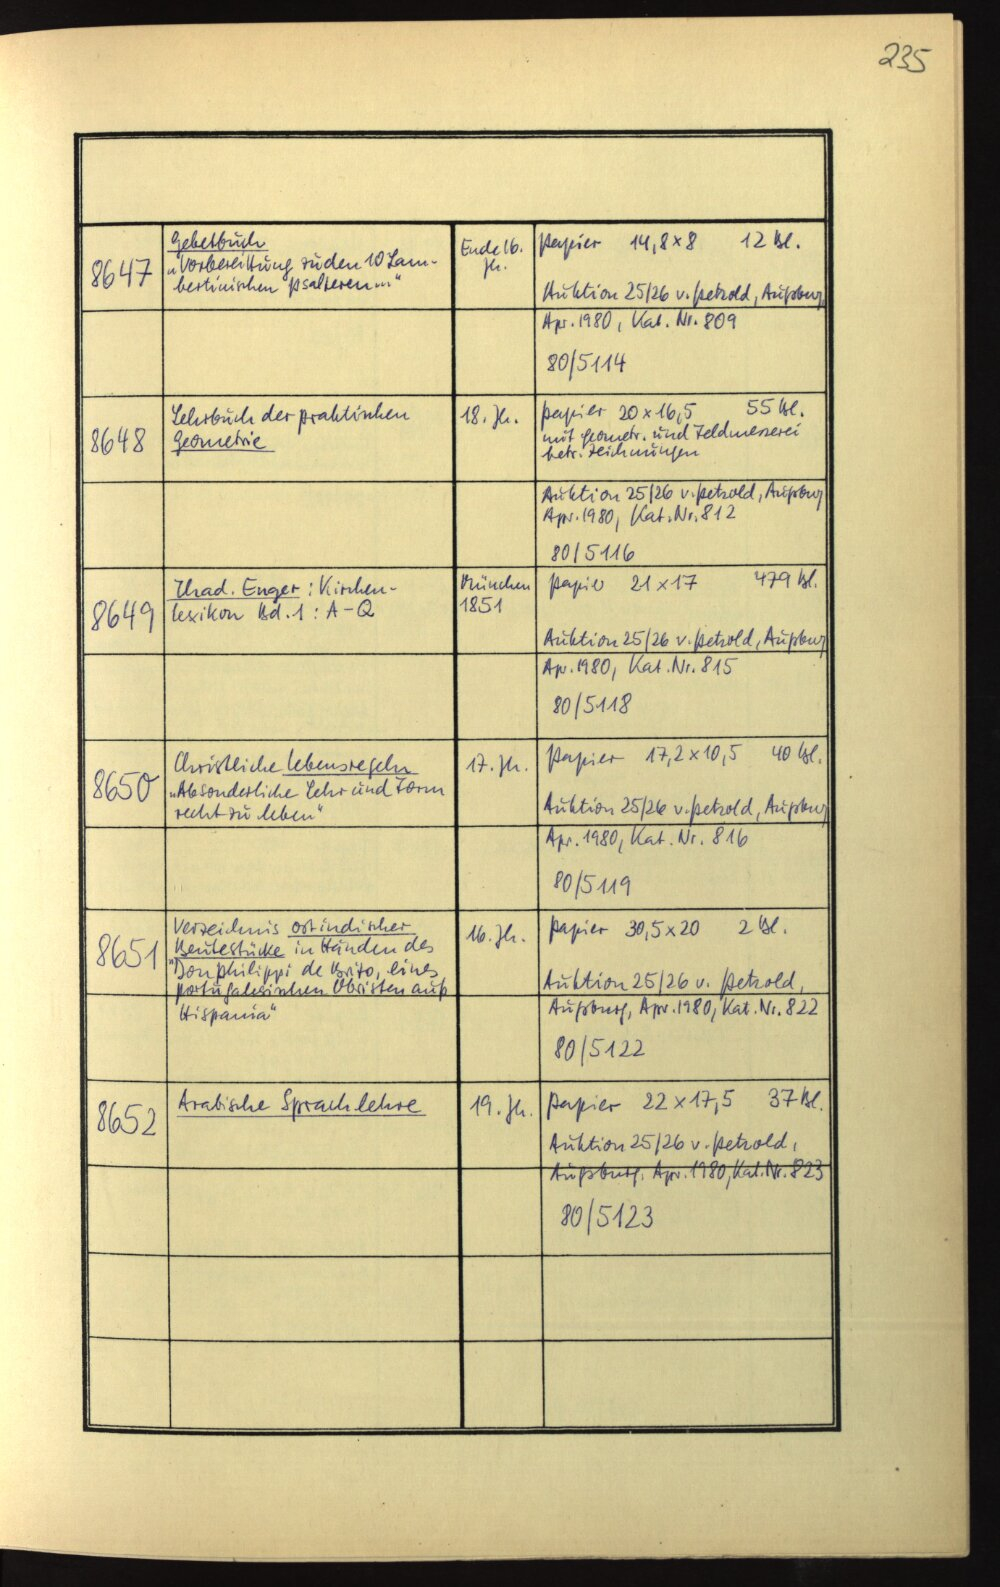 235
8647
Gebetbuch
„Vorbereittung zu den 10 Lam-
bertinischen Psalteren..."
Ende 16.
Jh.
Papier 14,8 x 8 12 Bl.
Auktion 25/26 v. Petzold, Augsburg,
Apr. 1980, Kat. Nr. 809
80/5114
8648
Lehrbuch der praktischen
Geometrie
18. Jh.
Papier 20 x 16,5 55 Bl.
mit geometr. und Feldmesserei
betr. Zeichnungen
Auktion 25/26 v. Petzold, Augsburg
Apr. 1980, Kat. Nr. 812
80/5116
8649
Thad. Enger: Kirchen-
lexikon Bd. 1: A-Q
München
1851
Papier 21 x 17 479 Bl.
Auktion 25/26 v. Petzold, Augsburg
Apr. 1980, Kat. Nr. 815
80/5118
8650
Christliche Lebensregeln
„Absonderliche Lehr und Form
recht zu leben"
17. Jh.
Papier 17,2 x 10,5 40 Bl.
Auktion 25/26 v. Petzold, Augsburg
Apr. 1980, Kat. Nr. 816
80/5119
8651
Verzeichnis ostindischer
Beutestücke in Händen des
"Don Philippi de Brito, eines
portugalesischen Obristen auß
Hispania"
16. Jh.
Papier 30,5 x 20 2 Bl.
Auktion 25/26 v. Petzold,
Augsburg, Apr. 1980, Kat. Nr. 822
80/5122
8652
Arabische Sprachlehre
19. Jh.
Papier 22 x 17,5 37 Bl.
Auktion 25/26 v. Petzold,
Augsburg, Apr. 1980, Kat. Nr. 823
80/5123